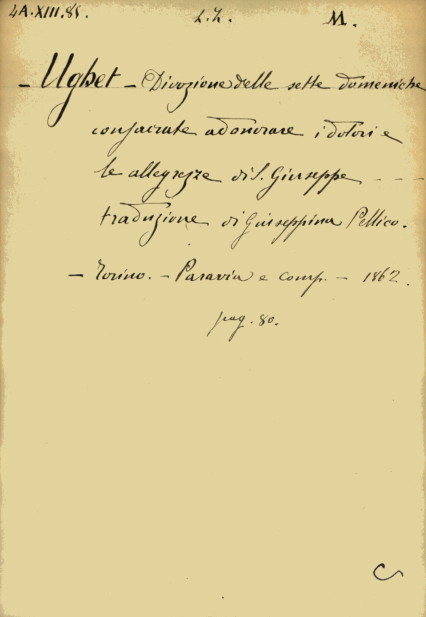 4A.XIII.85. L.L. M.
- Ughet - Divozione delle sette domeniche
consacrate ad onorare i dolori e
le allegrezze di S. Giuseppe - - -
traduzione di Giuseppina Pellico.
- Torino. - Paravia e comp. - 1862.
pag. 80.
C